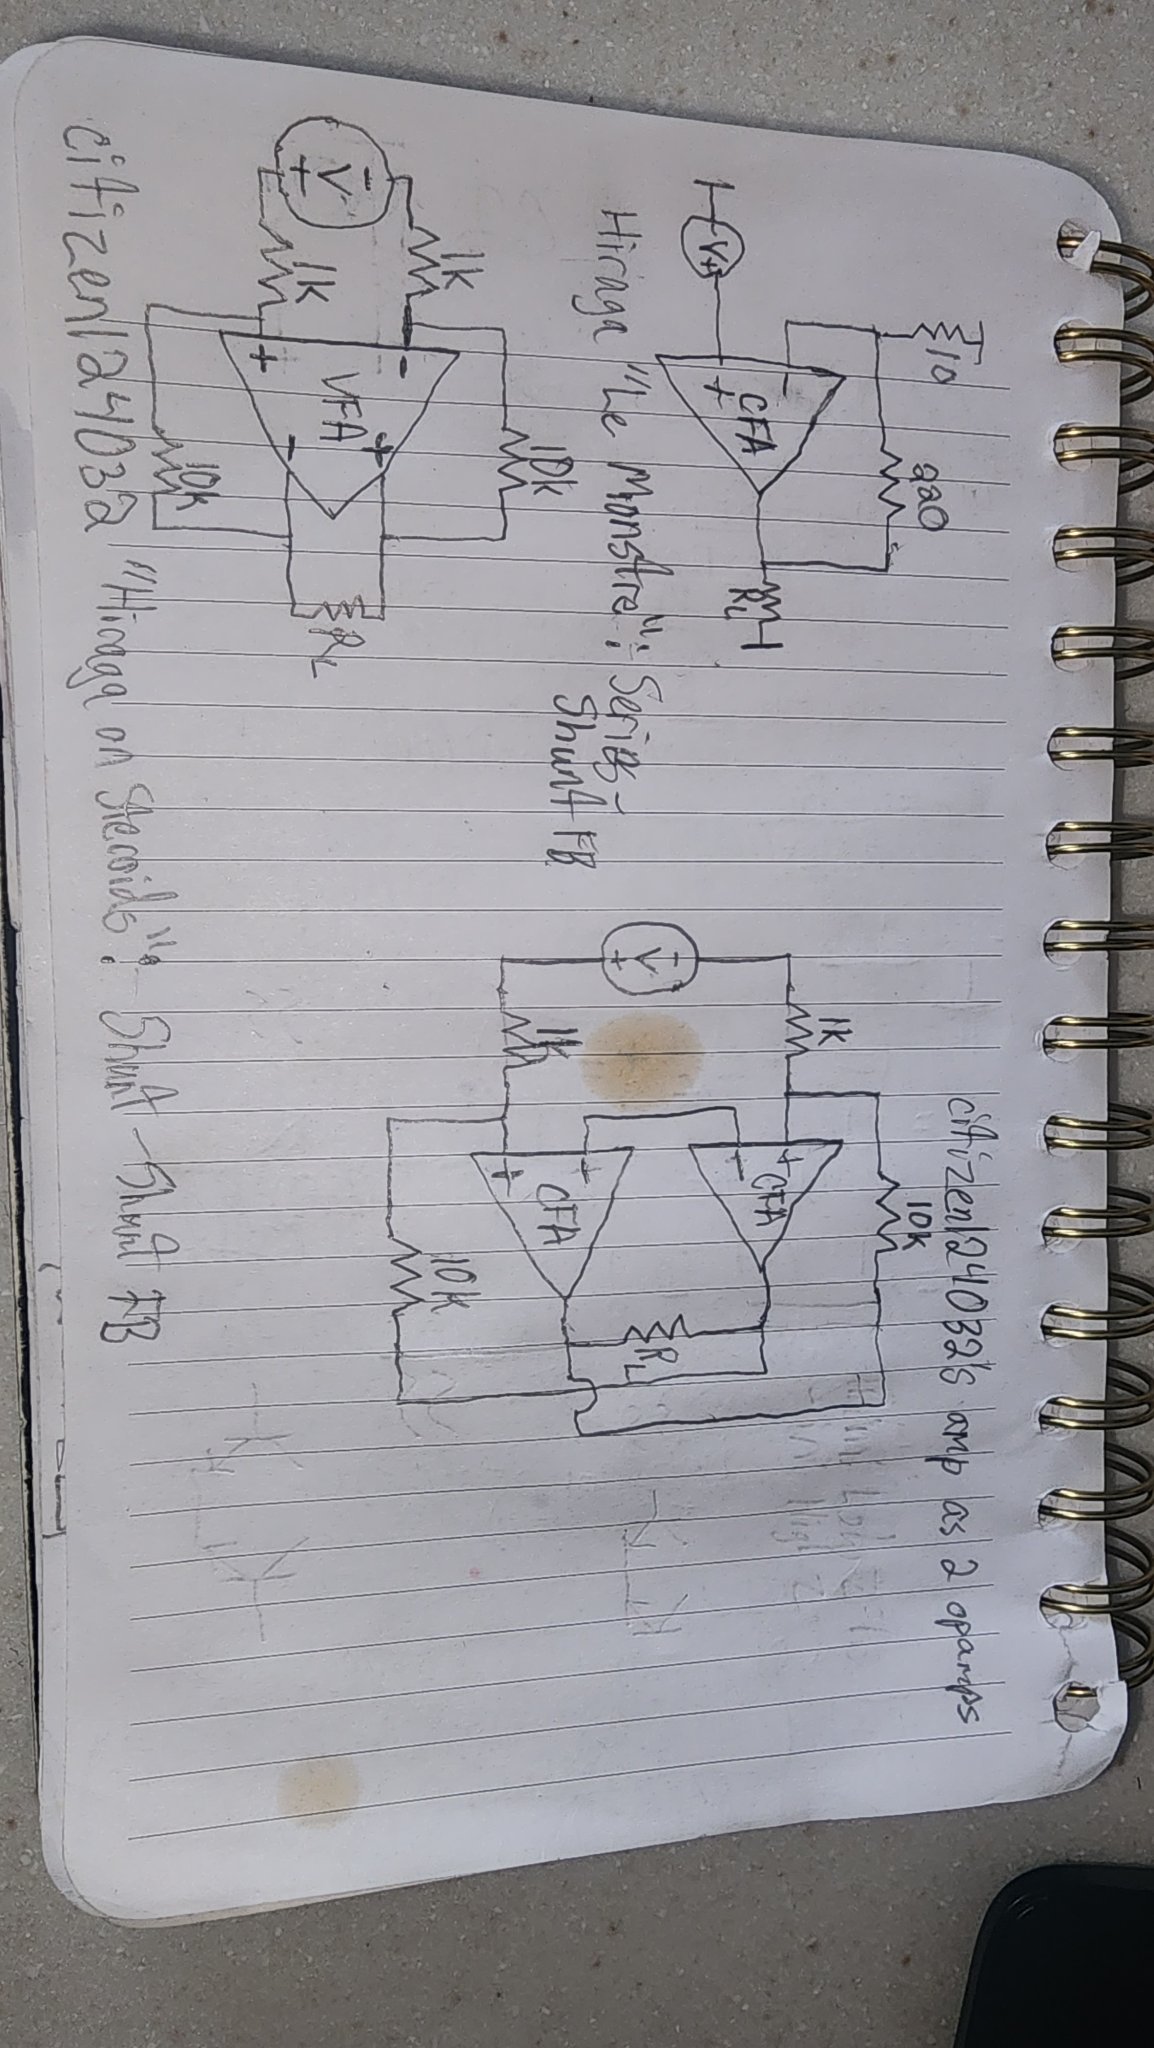 10
220
CFA
-
+
V+
RL
Hiraga "Le Monstre": Series-
Shunt FB
1k
10k
-
V
+
-
+
VFA
+
-
1k
10k
RL
citizen124032 "Hiraga on Steroids": Shunt-Shunt FB
citizen124032's amp as 2 opamps
1k
10k
+
CFA
-
-
V
+
RL
-
CFA
+
1k
10k